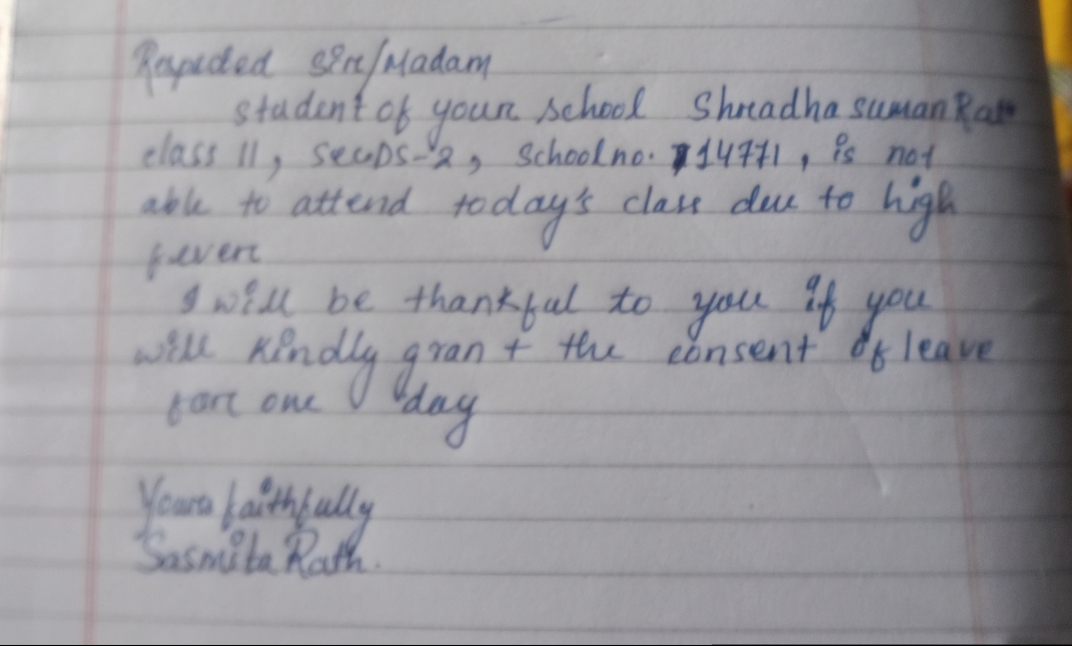 Respected Sir/Madam
student of your school Shradha suman Rath
class 11, sec-DS-2, School no. 14771, is not
able to attend today's class due to high
fever
I will be thankful to you if you
will kindly grant the consent of leave
for one day
Yours faithfully
Sasmita Rath.